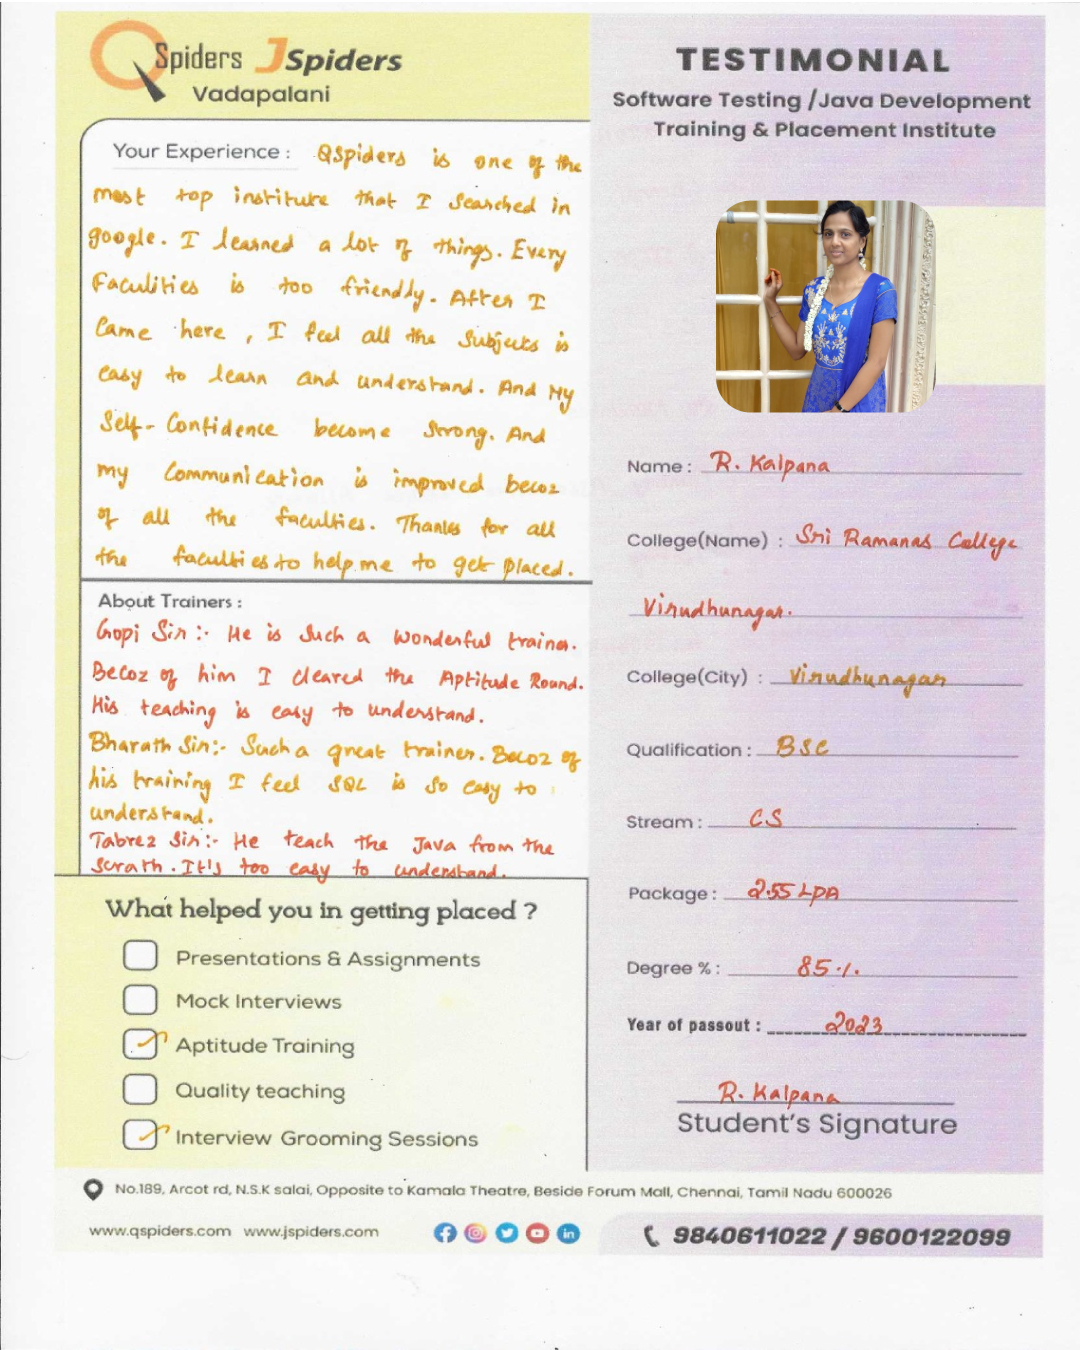 QSpiders JSpiders
Vadapalani
TESTIMONIAL
Software Testing /Java Development
Training & Placement Institute
Your Experience : QSpiders is one of the
most top institute that I Searched in
google. I learned a lot of things. Every
Faculities is too frienddy. After I
Came here , I feel all the Subjects is
easy to learn and understand. And My
Self- Confidence become Strong. And
my Communication is improved becoz
of all the faculties. Thanks for all
the faculties to help me to get placed.
About Trainers :
Gopi Sir :- He is Such a wonderful trainer.
Becoz of him I cleared the Aptitude Round.
His teaching is easy to understand.
Bharath Sir:- Such a great trainer. Becoz of
his training I feel SQL is so easy to
understand.
Tabrez Sir:- He teach the Java from the
scrath. It's too easy to understand.
What helped you in getting placed ?
Presentations & Assignments
Mock Interviews
Aptitude Training
Quality teaching
Interview Grooming Sessions
Name : R. Kalpana
College(Name) : Sri Ramanas College
Virudhunagar.
College(City) : Virudhunagar
Qualification : BSC
Stream : CS
Package : 2.55 LPA
Degree % : 85 %
Year of passout : 2023
R. Kalpana
Student's Signature
No.189, Arcot rd, N.S.K salai, Opposite to Kamala Theatre, Beside Forum Mall, Chennai, Tamil Nadu 600026
www.qspiders.com www.jspiders.com
9840611022 / 9600122099